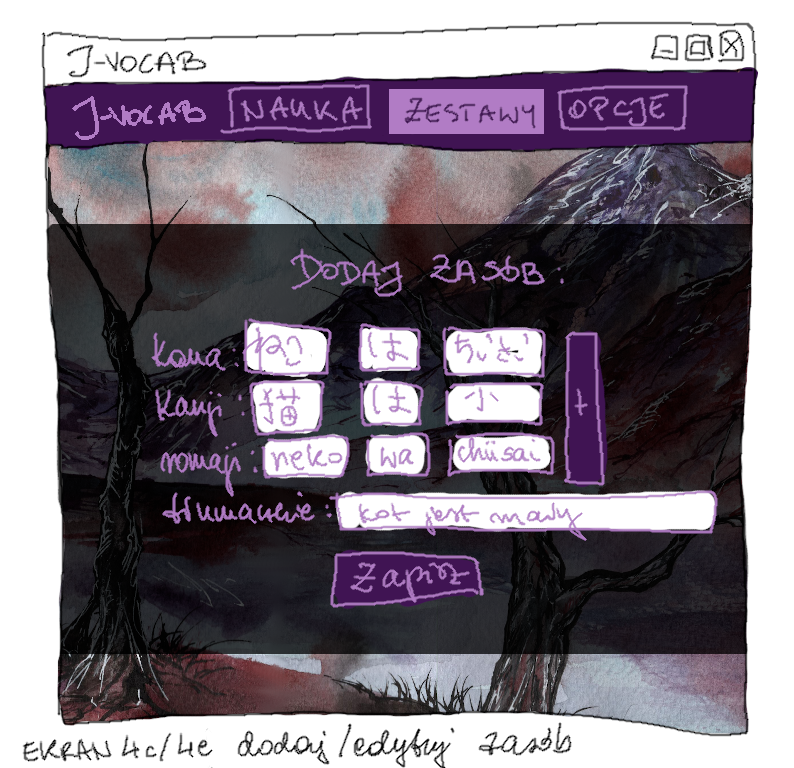 J-VOCAB
J-VOCAB NAUKA ZESTAWY OPCJE
DODAJ ZASÓB:
kana: ねこ は ちいさい
kanji: 猫 は 小
romaji: neko wa chiisai
tłumaczenie: kot jest mały
+
Zapisz
EKRAN 4c/4e dodaj/edytuj zasób